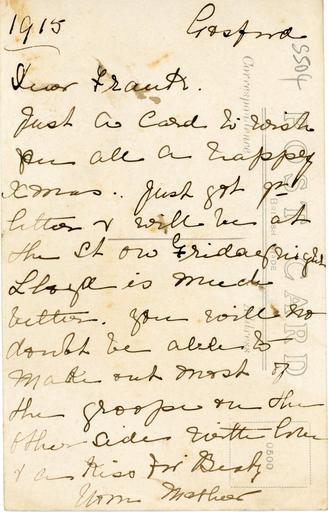 1915
Gosford
5504
Dear Frank.
Just a card to wish
you all a happy
Xmas.. Just got yr
letter & will be at
the St on Friday night
Lloyd is much
better. you will no
doubt be able to
make out most of
the groope on the
other side with love
& a Kiss for
Your Mother
POST CARD
Correspondence
Address
BRITISH MADE